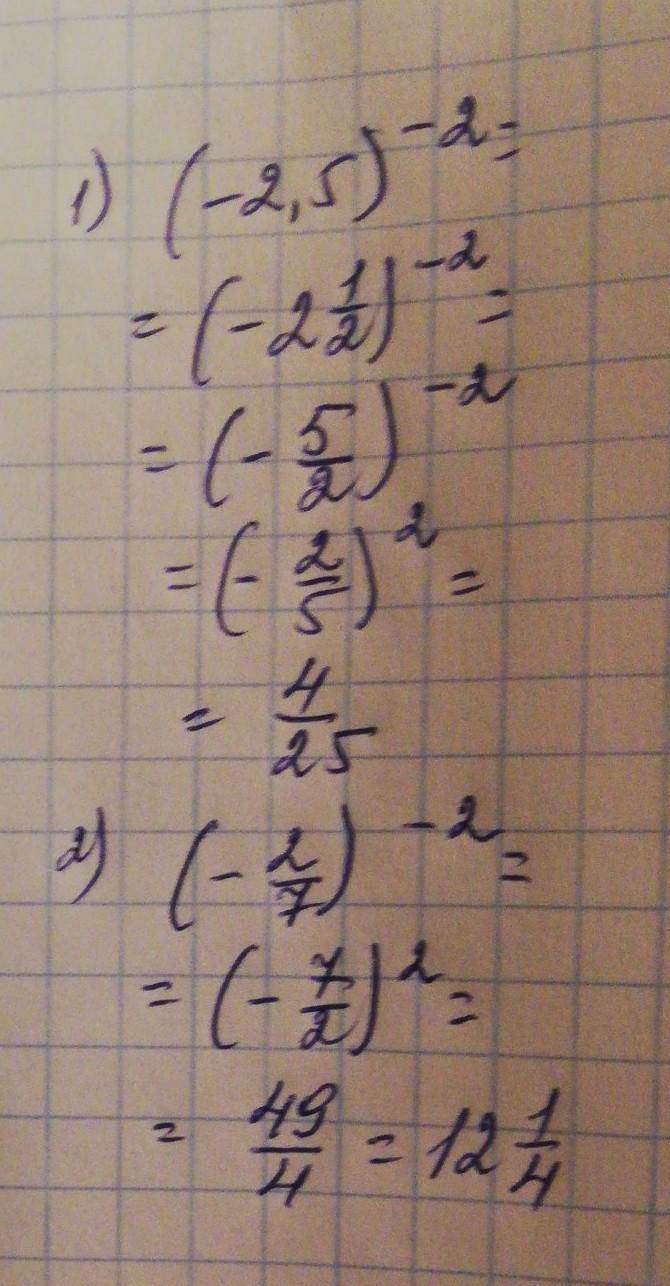 1) (-2,5)^{-2} =
= (-2\frac{1}{2})^{-2} =
= (-\frac{5}{2})^{-2}
= (-\frac{2}{5})^{2} =
= \frac{4}{25}
2) (-\frac{2}{7})^{-2} =
= (-\frac{7}{2})^{2} =
= \frac{49}{4} = 12\frac{1}{4}